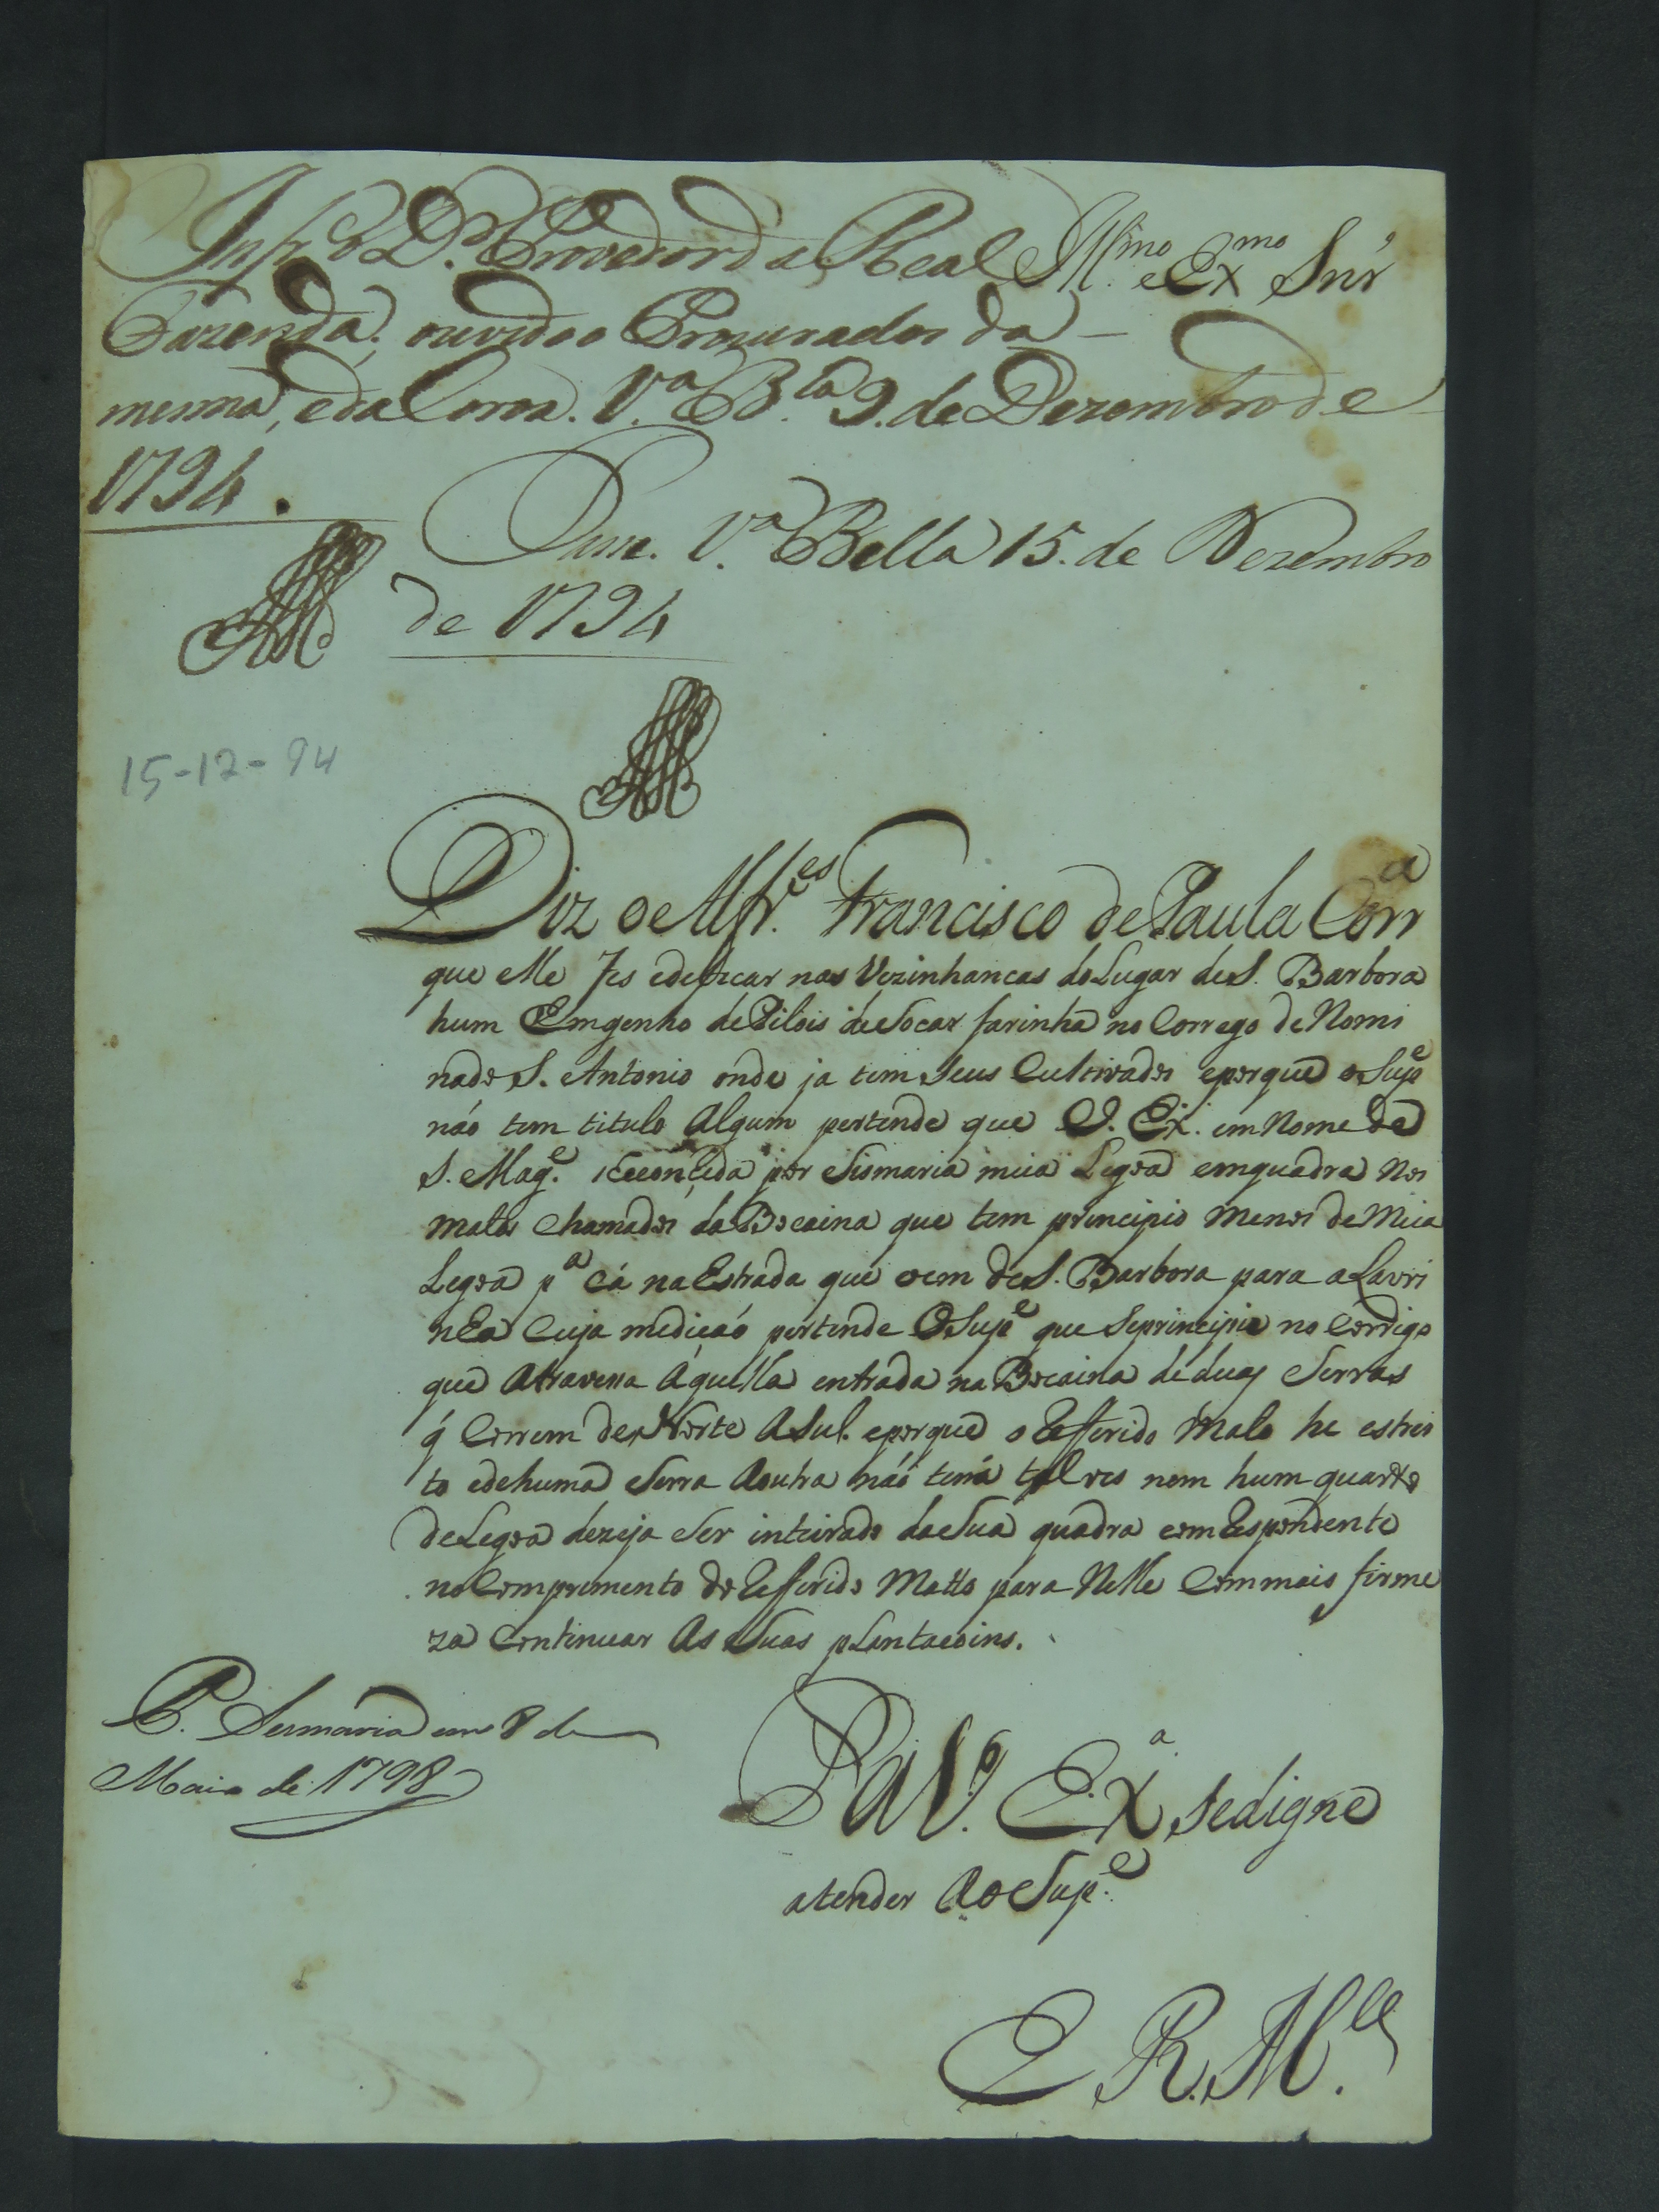 Inf.e o D.or Provedor da Real
Fazenda; ouvido o Procurador da
mesma, e da Coroa. V.a B.la 9. de Dezembro de
1794.
Ill.mo e Ex.mo Snr'
Passe. V.a Bella 15. de Dezembro
de 1794
15-12-94
Diz o Alfr.es Francisco de Paula Corr.a
que elle fes edeficar nas Vezinhancas do Lugar de S. Barbora
hum Emgenho de Pilois de Socar farinha no Corrego de Nomi
nado S. Antonio onde ja tem Seus Cultivados eporque o Sup.e
não tem titulo Algum pertende que V. Ex. em Nome de
S. Mag.e conceda por Sismaria meia Legoa emquadra nos
matos chamados da Bocaina que tem principio menos de Meia
Legoa p.a cá na Estrada que vem de S. Barbora para a Lavri
nha Cuja medição pertende O Sup.e que Seprincipie no Corrigo
que Atravessa Aquella entrada na Bocaina de duas Serras
q̃ Correm de Norte ASul. eporque o Refferido Mato he estrei
to edehuma Serra Aoutra não terá talves nem hum quarto
de Legoa dezeja Ser inteirado da Sua quadra comRespondente
no Comprimento do Refferido Matto para Nelle Com mais firme
za Continuar As Suas plantacoins.
P. Sesmaria em 8 de
Maio de 1798
P a V. Ex.a sedigne
atender Ao Sup.e
E. R. M.ce